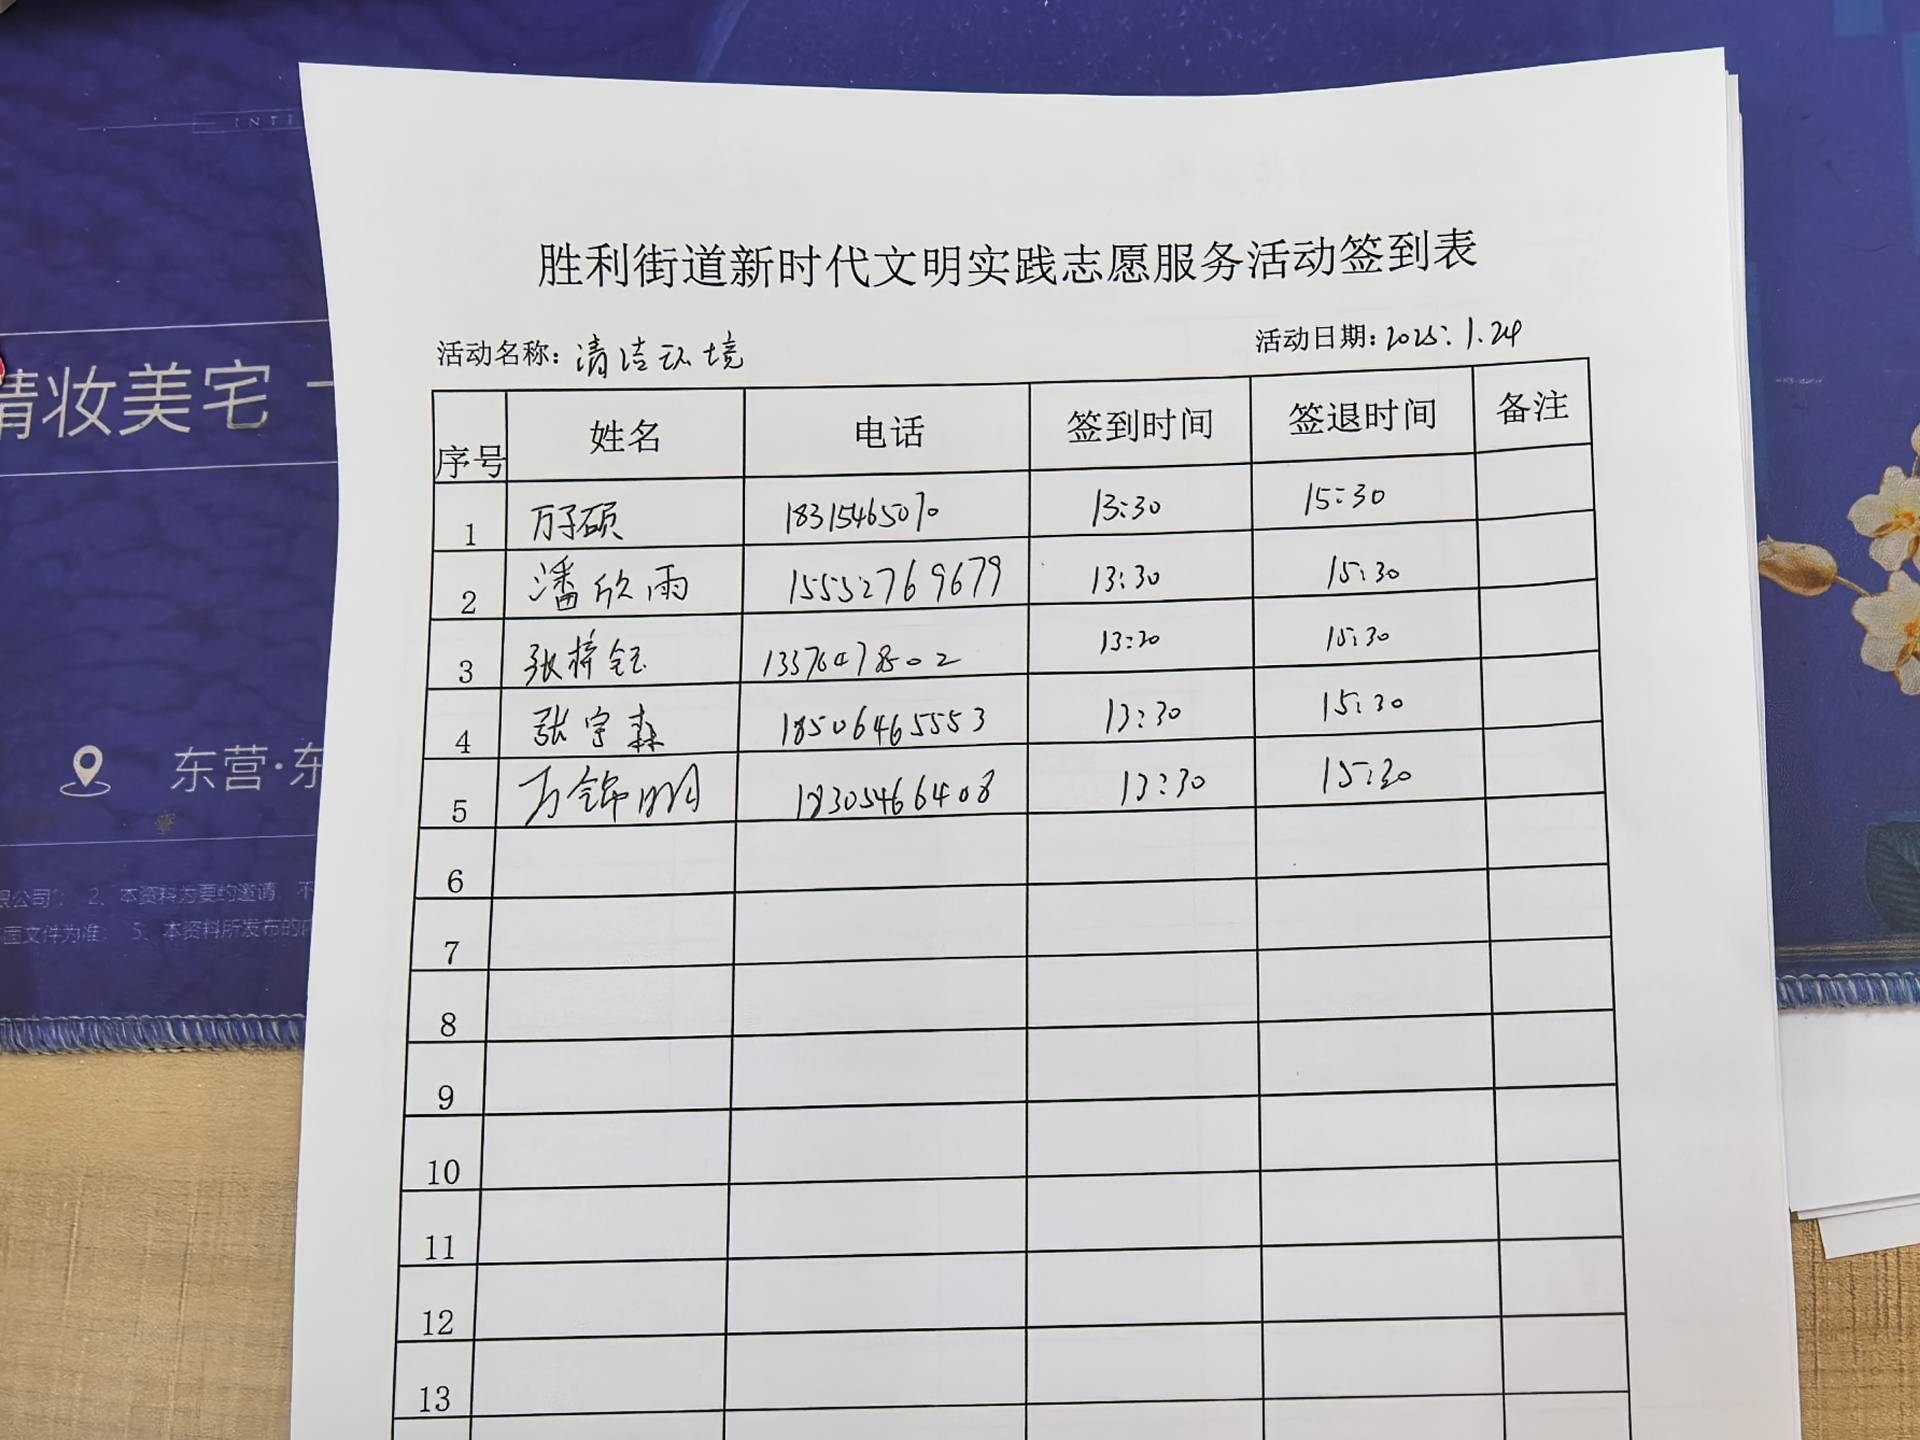 INTE
精妆美宅
东营·东
限公司； 2、本资料为要约邀请，不
面文件为准； 5、本资料所发布的内
胜利街道新时代文明实践志愿服务活动签到表
活动名称：清洁环境 活动日期：2025.1.24
序号 姓名 电话 签到时间 签退时间 备注
1 万子硕 18315465070 13:30 15:30
2 潘欣雨 15552769679 13:30 15:30
3 张梓钰 13376478502 13:30 15:30
4 张宇森 18506465553 13:30 15:30
5 万锦明 18305466408 13:30 15:30
6
7
8
9
10
11
12
13